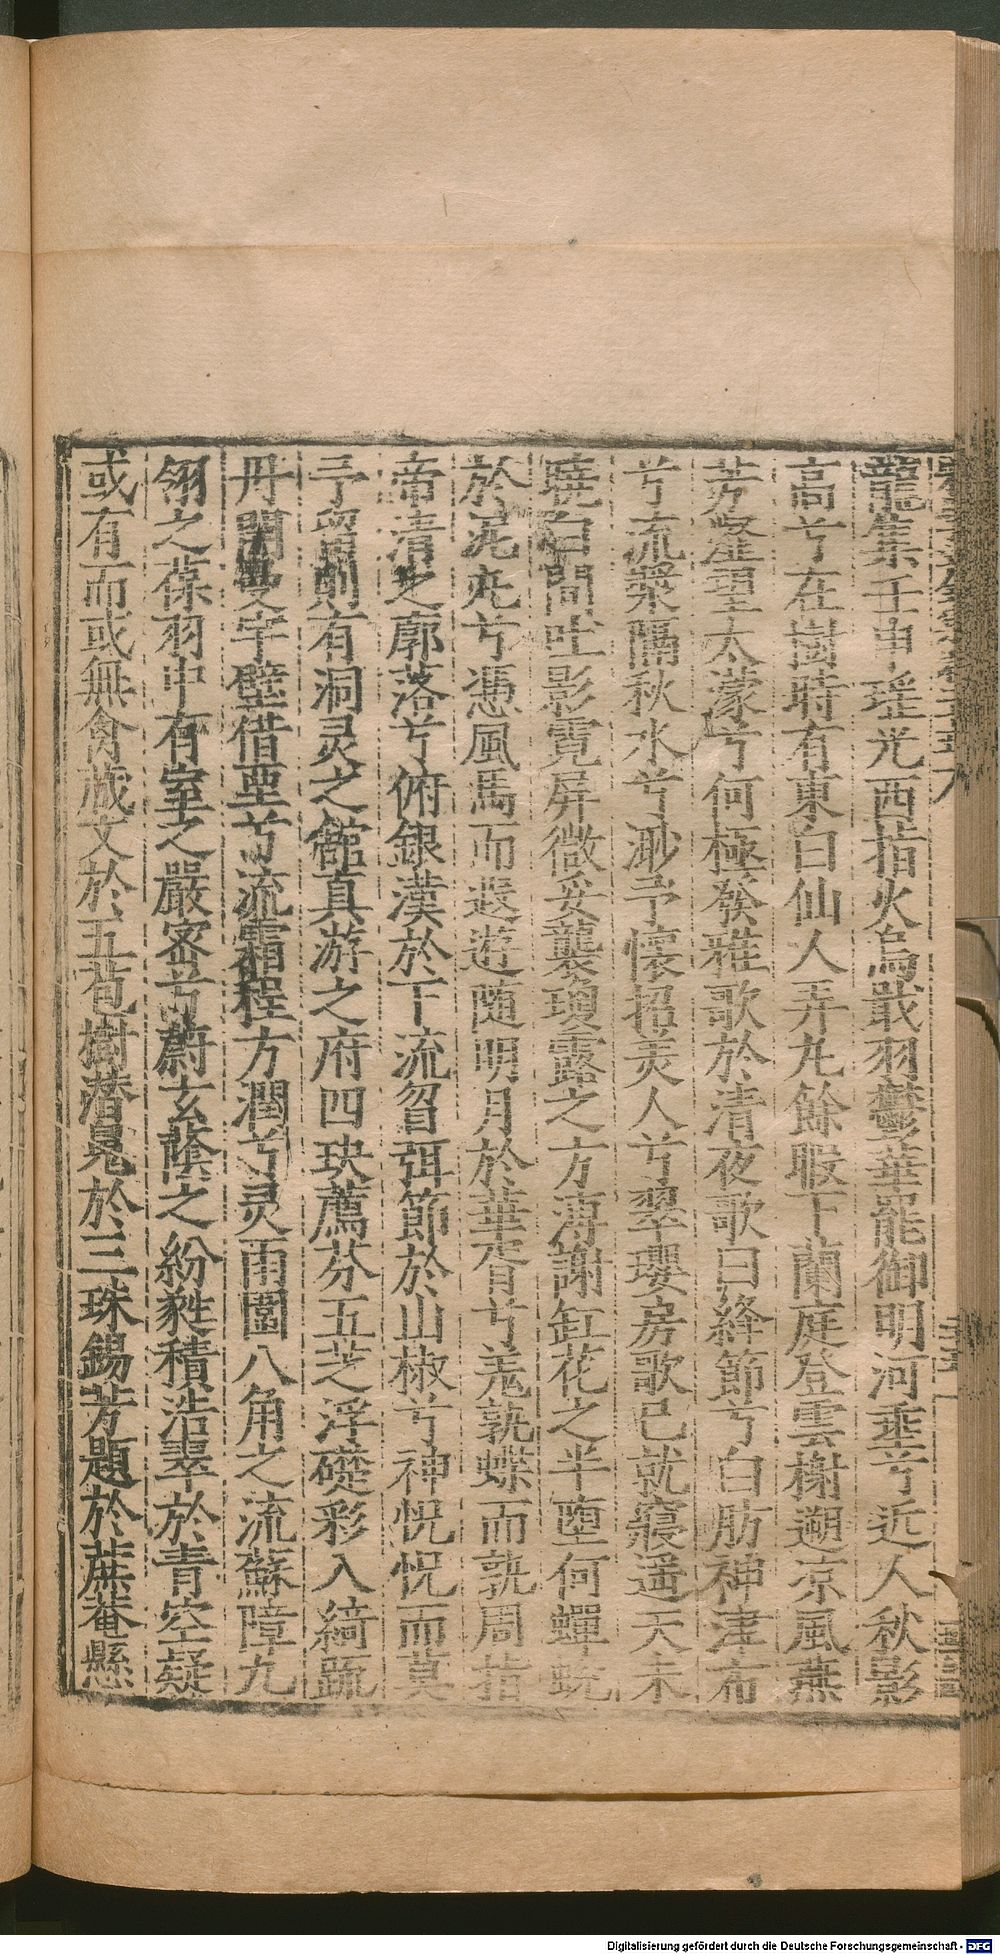 龍集壬申瑤光西指火烏戢羽鬱華罷御明河垂兮近人秋影
高兮在樹時有東白仙人弄丸餘暇下蘭庭登雲榭遡凉風燕
芳堅聖太蒙兮何極發雅歌於清夜歌曰絳節兮白肪神津布
兮流漿隔秋水兮渺予懷招美人兮翠瓔房歌已就寢遥天未
曉白間吐影霓屏微妥襲瓊露之方溥謝缸花之半墮何蟬蛻
於泥充兮憑風馬而遐遊随明月於華胥兮羌孰蝶而孰周指
帝清之廓落兮俯銀漢於下流曶弭節於山椒兮神怳怳而莫
予留則有洞灵之館真游之府四玦薦芬五芝浮礎彩入綺疏
丹開雯宇璧借堊兮流霜程方潤兮灵雨圜八角之流蘇障九
翎之葆羽中有室之嚴密兮蔚玄蔭之紛蕤積浩翠於青空疑
或有而或無禽蔵文於五苞樹潜晃於三珠錫芳題於蔗菴懸
Digitalisierung gefördert durch die Deutsche Forschungsgemeinschaft - DFG